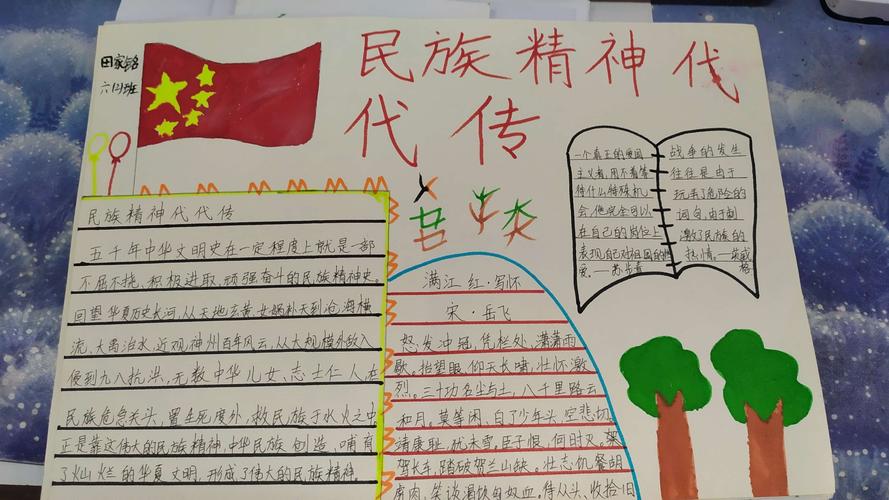 民族精神代
代传
田家铭
六(2)班
民族精神代代传
五千年中华文明史在一定程度上就是一部
不屈不挠、积极进取、顽强奋斗的民族精神史。
回望华夏历史长河,从天地玄黄、女娲补天到沧海横
流、大禹治水,近观神州百年风云,从大规模外敌入
侵到九八抗洪,无数中华儿女、志士仁人在
民族危急关头,置生死度外,救民族于水火之中
正是靠这伟大的民族精神,中华民族创造、哺育
了灿烂的华夏文明,形成了伟大的民族精神。
满江红·写怀
宋·岳飞
怒发冲冠,凭栏处、潇潇雨
歇。抬望眼,仰天长啸,壮怀激
烈。三十功名尘与土,八千里路云
和月。莫等闲、白了少年头,空悲切
靖康耻,犹未雪。臣子恨,何时灭。驾
驾长车,踏破贺兰山缺。壮志饥餐胡
虏肉,笑谈渴饮匈奴血。待从头、收拾旧
一个真正的爱国
主义者,用不着等
待什么特殊机
会,他完全可以
在自己的岗位上
表现自己对祖国的热
爱。——苏步青
战争的发生
往往是由于
玩弄了危险的
词句,由于刺
激了民族的
热情。——英威
格